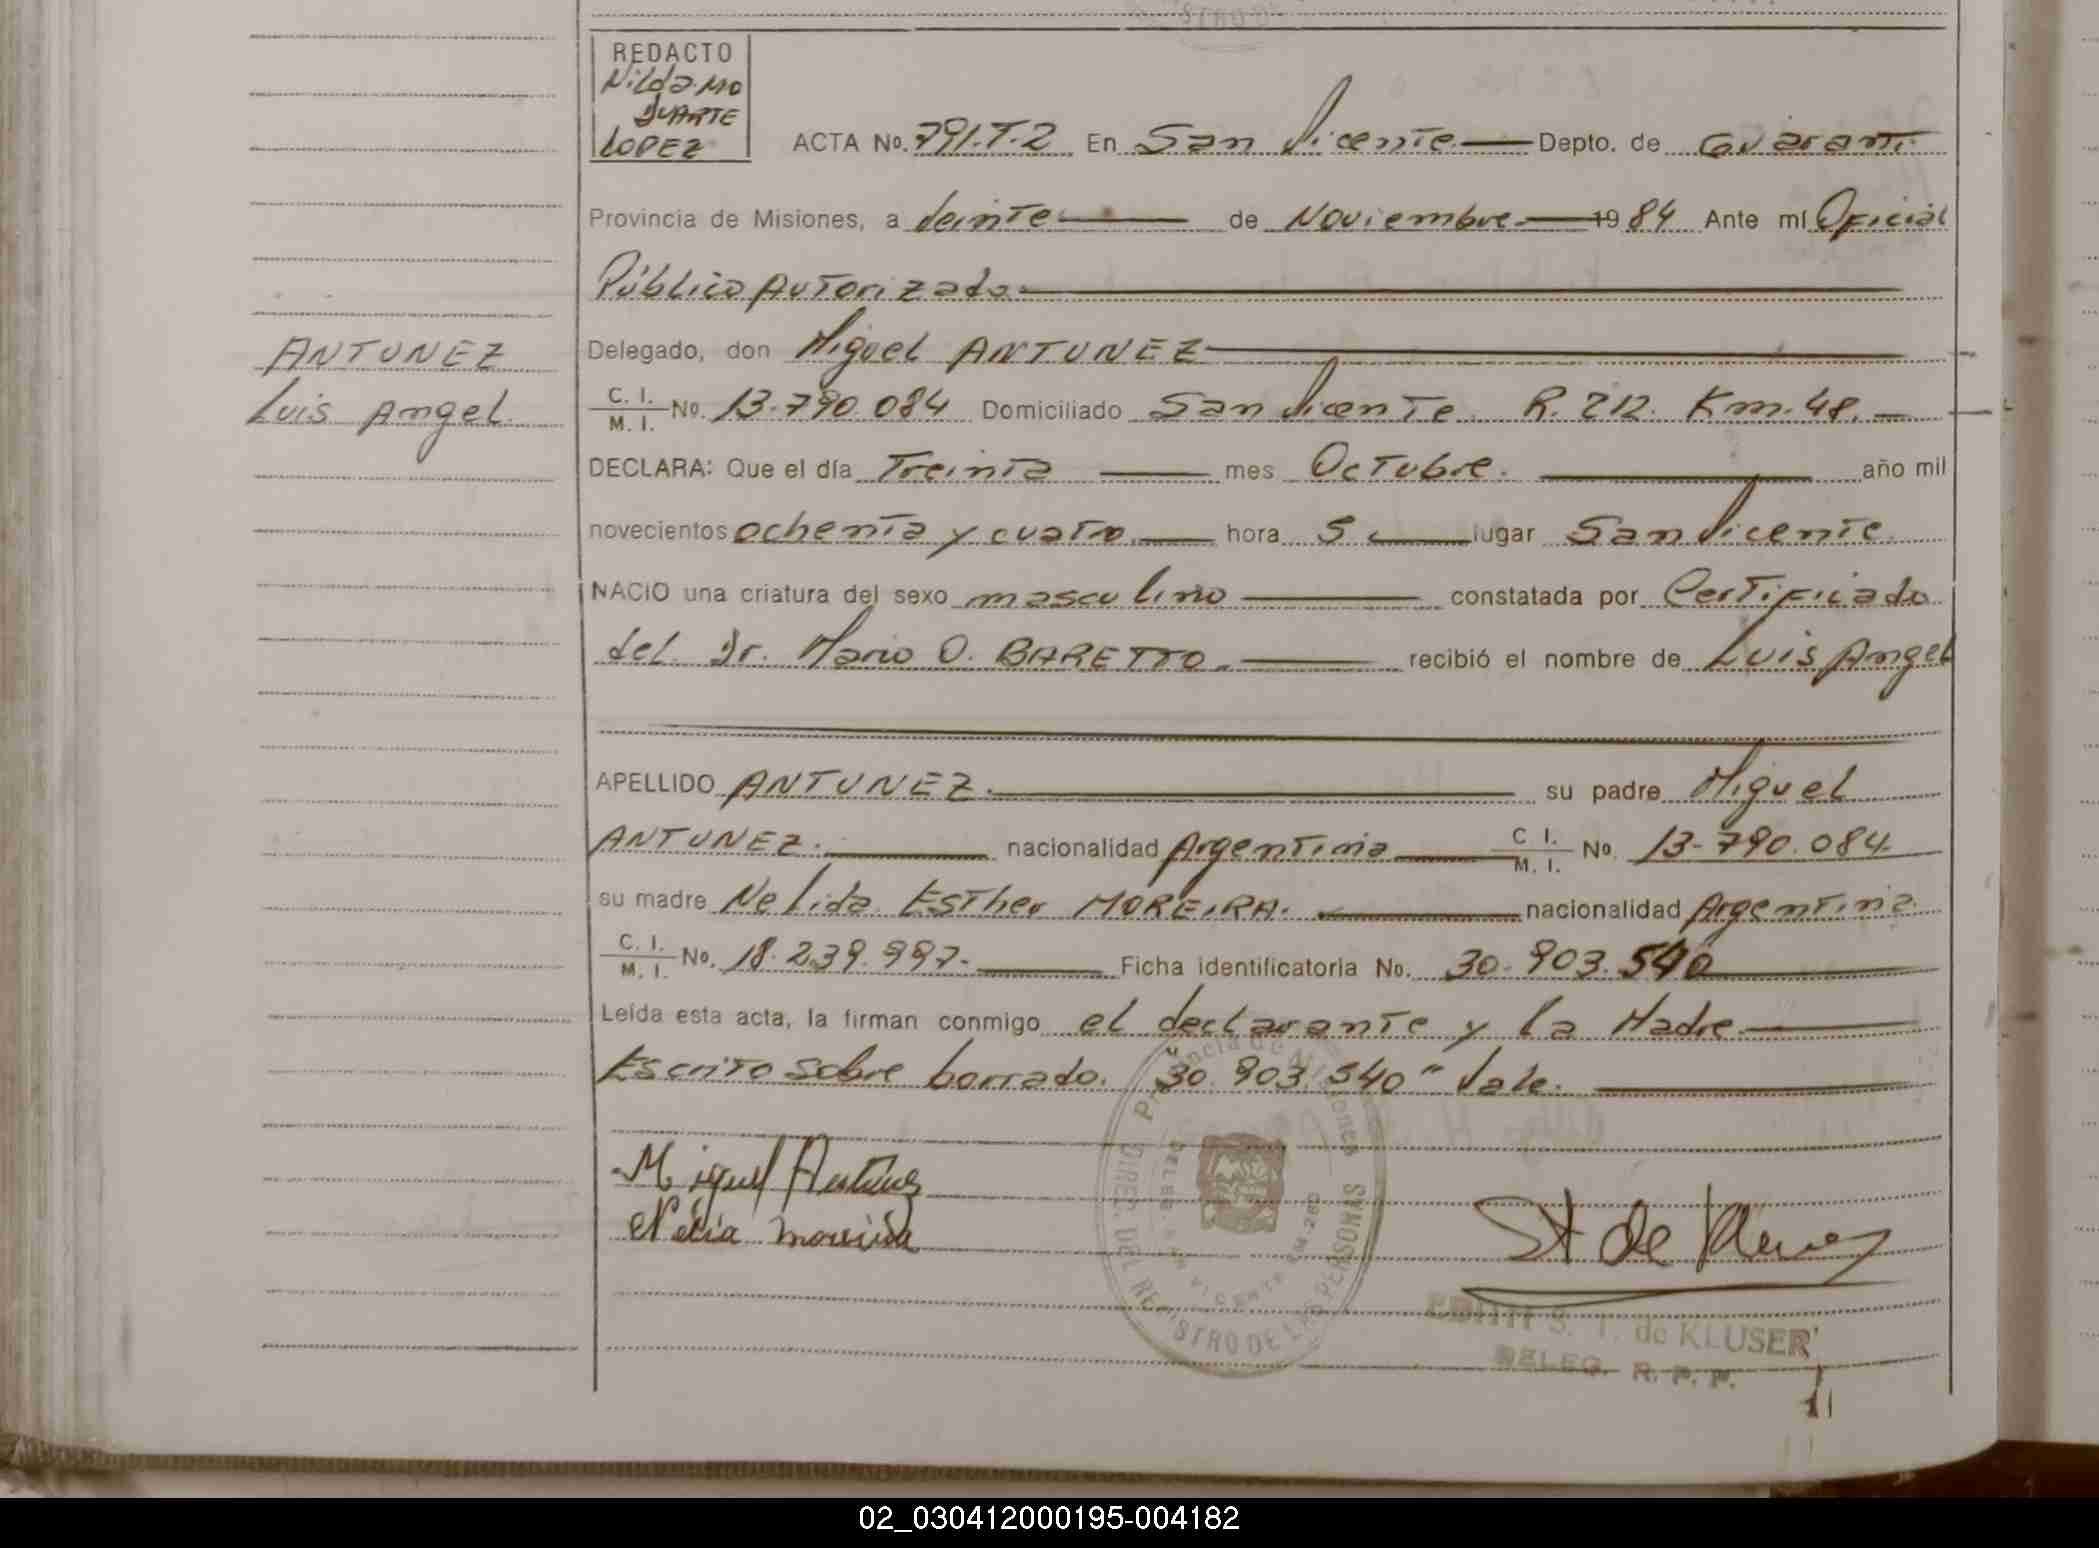 REDACTO
Nilda. Mo
DUARTE
LOPEZ
ACTA No. 791.T.2 En San Vicente. Depto. de Guarani
Provincia de Misiones, a Veinte de Noviembre 1984 Ante mí Oficial
Público Autorizado.
ANTUNEZ
Luis Angel.
Delegado, don Miguel ANTUNEZ
C. I. / M. I. No. 13.790.084 Domiciliado San Vicente. R. 212. Km. 48.
DECLARA: Que el día Treinta mes Octubre. año mil
novecientos ochenta y cuatro. hora 5 lugar San Vicente.
NACIO una criatura del sexo masculino constatada por Certificado
del Dr. Mario O. BARETTO. recibió el nombre de Luis Angel
APELLIDO ANTUNEZ. su padre Miguel
ANTUNEZ. nacionalidad Argentina C I. / M. I. No. 13-790.084.
su madre Nelida Esther MOREIRA. nacionalidad Argentina.
C. I. / M. I. No. 18.239.997. Ficha identificatoria No. 30.903.540
Leída esta acta, la firman conmigo el declarante y la Madre.
Escrito sobre borrado. "30.903.540" Vale.
Miguel Antunez
Nelia Moreira
Provincia de Misiones
DIREC. DEL REGISTRO DE LAS PERSONAS
DELEG. SAN VICENTE KM. 260
St de Kluser
EDITH S. T. de KLUSER
DELEG. R. P. P.
02_030412000195-004182